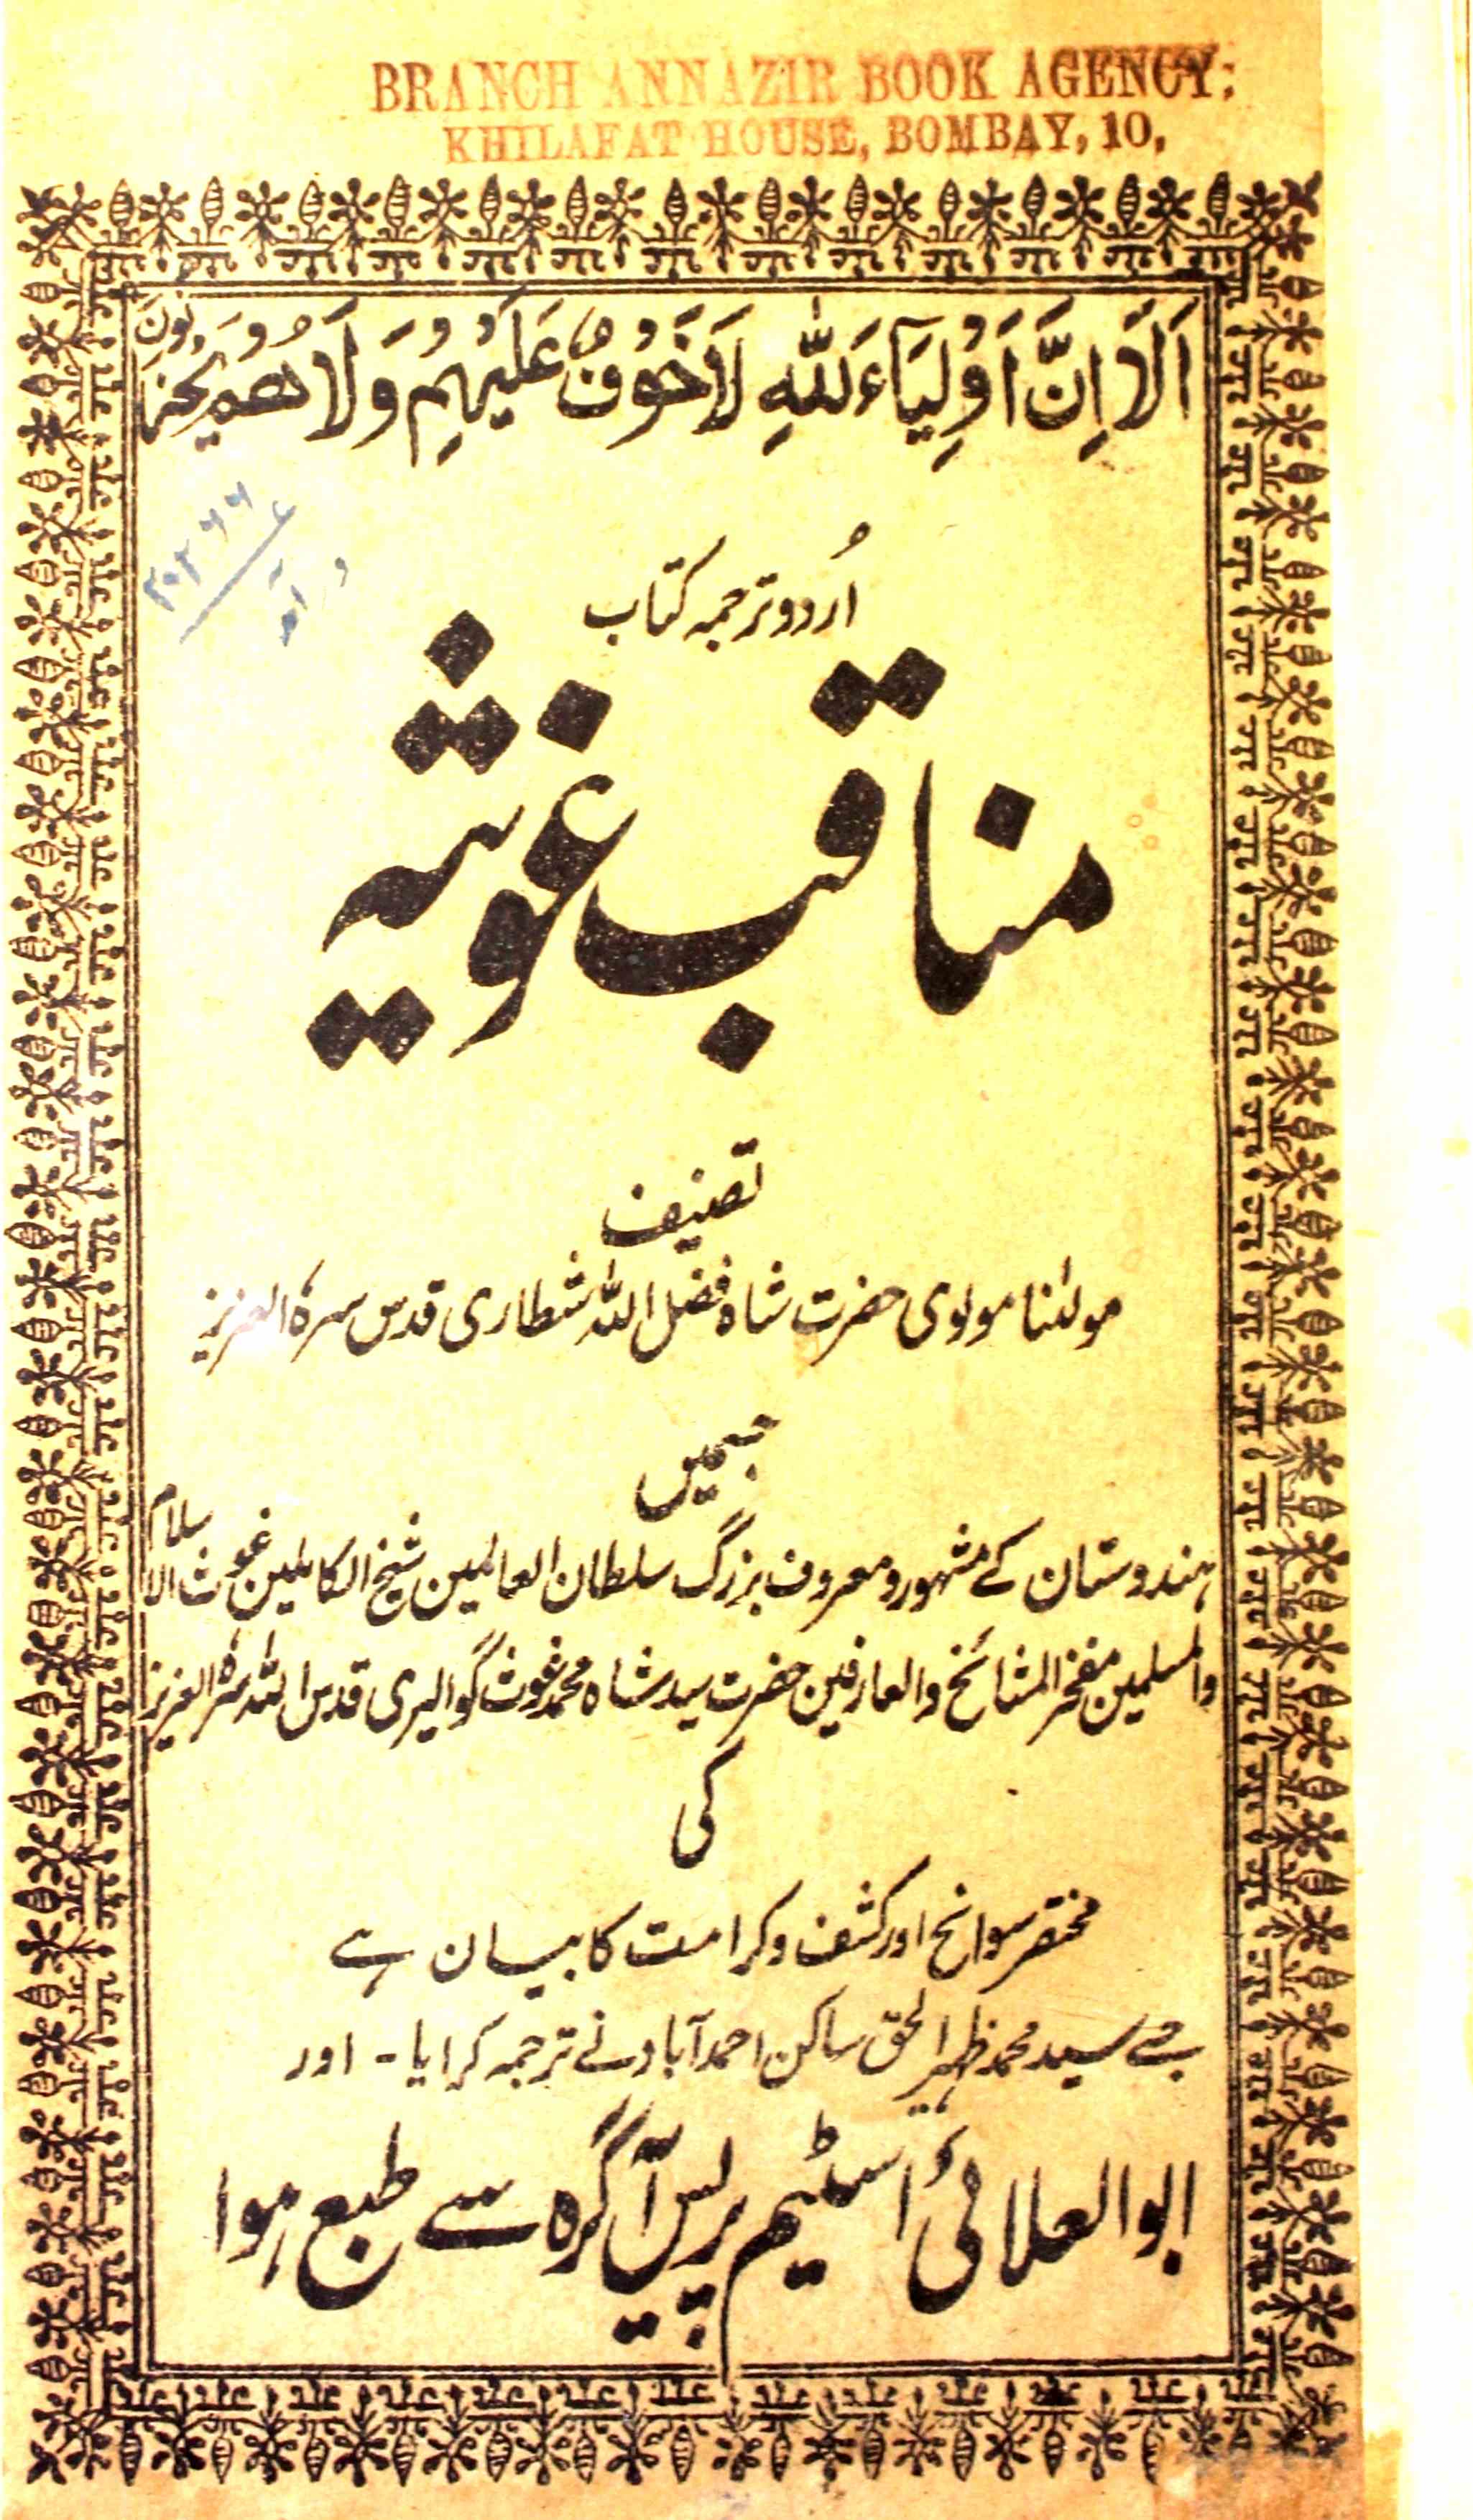 BRANCH ANNAZIR BOOK AGENCY:
KHILAFAT HOUSE, BOMBAY, 10,
اَلَا اِنَّ اَوْلِيَآءَ اللّٰهِ لَاخَوْفٌ عَلَيْهِمْ وَلَا هُمْ يَحْزَنُوْنَ
اُردو ترجمہ کتاب
مناقب غوثیہ
تصنیف
مولٰنا مولوی حضرت شاہ فضل اللہ شطاری قدس سرہٗ العزیز
جسمیں
ہندوستان کے مشہور و معروف بزرگ سلطان العالمین شیخ الکاملین غوث الاسلام
والمسلمین مفخر المشائخ والعارفین حضرت سید شاہ محمد غوث گوالیری قدس اللہ سرہٗ العزیز
کی
مختصر سوانح اور کشف و کرامت کا بیان ہے
جسے سید محمد ظہیر الحق ساکن احمد آباد نے ترجمہ کرایا - اور
ابوالعلائی اسٹیم پریس آگرہ سے طبع ہوا